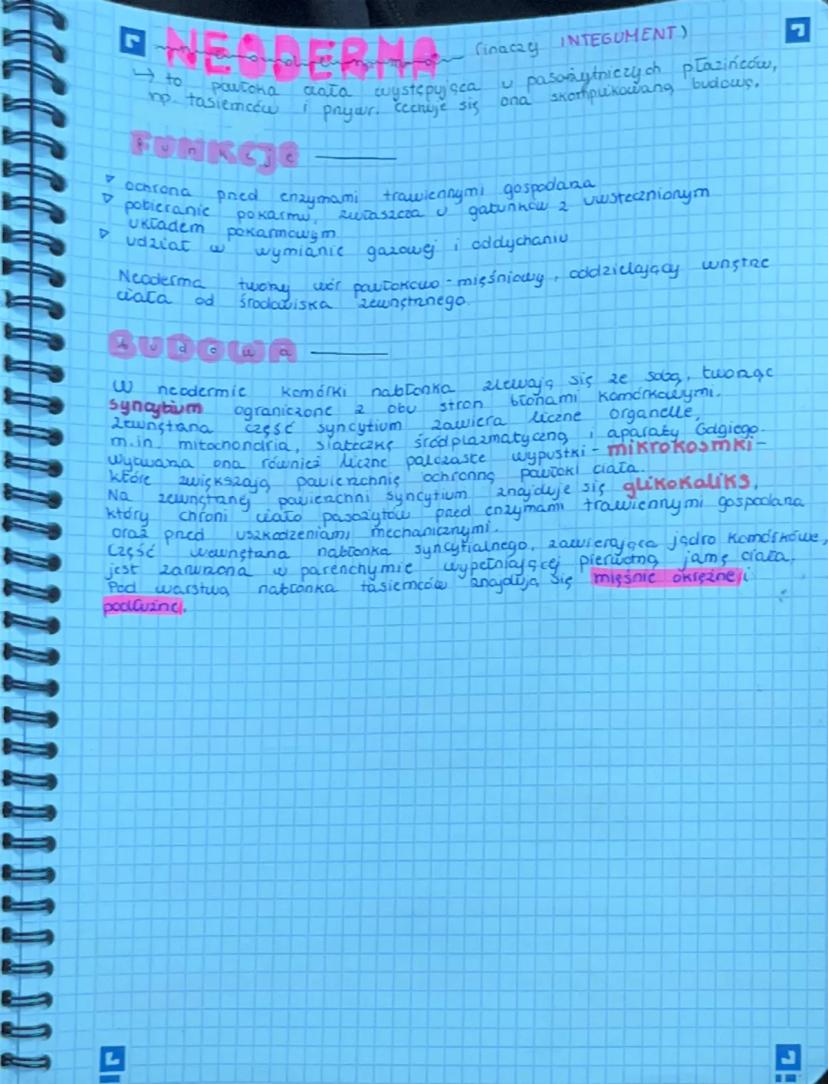 NEODERMA (inaczej INTEGUMENT)
↳ to powłoka ciała występująca u pasożytniczych płazińców,
np. tasiemców i przywr. Cechuje się ona skomplikowaną budową.
Funkcje
▷ ochrona przed enzymami trawiennymi gospodarza
▷ pobieranie pokarmu, zwłaszcza u gatunków z uwstecznionym
układem pokarmowym
▷ udział w wymianie gazowej i oddychaniu
Neoderma tworzy wór powłokowo-mięśniowy, oddzielający wnętrze
ciała od środowiska zewnętrznego.
Budowa
W neodermie komórki nabłonka zlewają się ze sobą, tworząc
syncytium ograniczone z obu stron błonami komórkowymi.
Zewnętrzna część syncytium zawiera liczne organelle,
m.in. mitochondria, siateczkę śródplazmatyczną i aparaty Golgiego.
Wytwarza ona również liczne palczaste wypustki - mikrokosmki -
które zwiększają powierzchnię ochronną powłoki ciała.
Na zewnętrznej powierzchni syncytium znajduje się glikokaliks,
który chroni ciało pasożytów przed enzymami trawiennymi gospodarza
oraz przed uszkodzeniami mechanicznymi.
Część wewnętrzna nabłonka syncytialnego, zawierająca jądro komórkowe,
jest zanurzona w parenchymie wypełniającej pierwotną jamę ciała.
Pod warstwą nabłonka tasiemców znajdują się mięśnie okrężne i
podłużne.